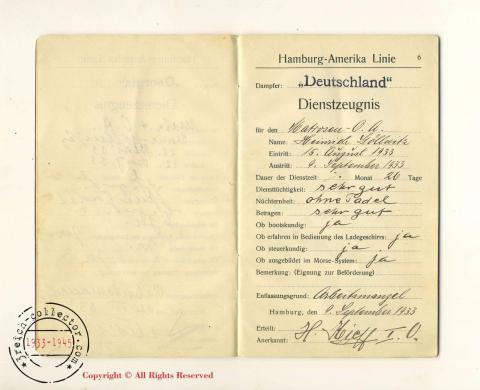 Hamburg-Amerika Linie 6
Dampfer: „Deutschland“
Dienstzeugnis
für den Matrosen-O. A.
Name: Heinrich
Eintritt: 15. August 1933
Austritt: 9. September 1933
Dauer der Dienstzeit Monat 26 Tage
Diensttüchtigkeit: sehr gut
Nüchternheit: ohne Tadel
Betragen: sehr gut
Ob bootskundig: ja
Ob erfahren in Bedienung des Ladegeschirrs: ja
Ob steuerkundig: ja
Ob ausgebildet im Morse-System: ja
Bemerkung: (Eignung zur Beförderung)
Entlassungsgrund: Arbeitsmangel
Hamburg, den 9. September 1933
Erteilt:
Anerkannt: H. I. O.
3reich-collector.com
1933-1945
Copyright © All Rights Reserved